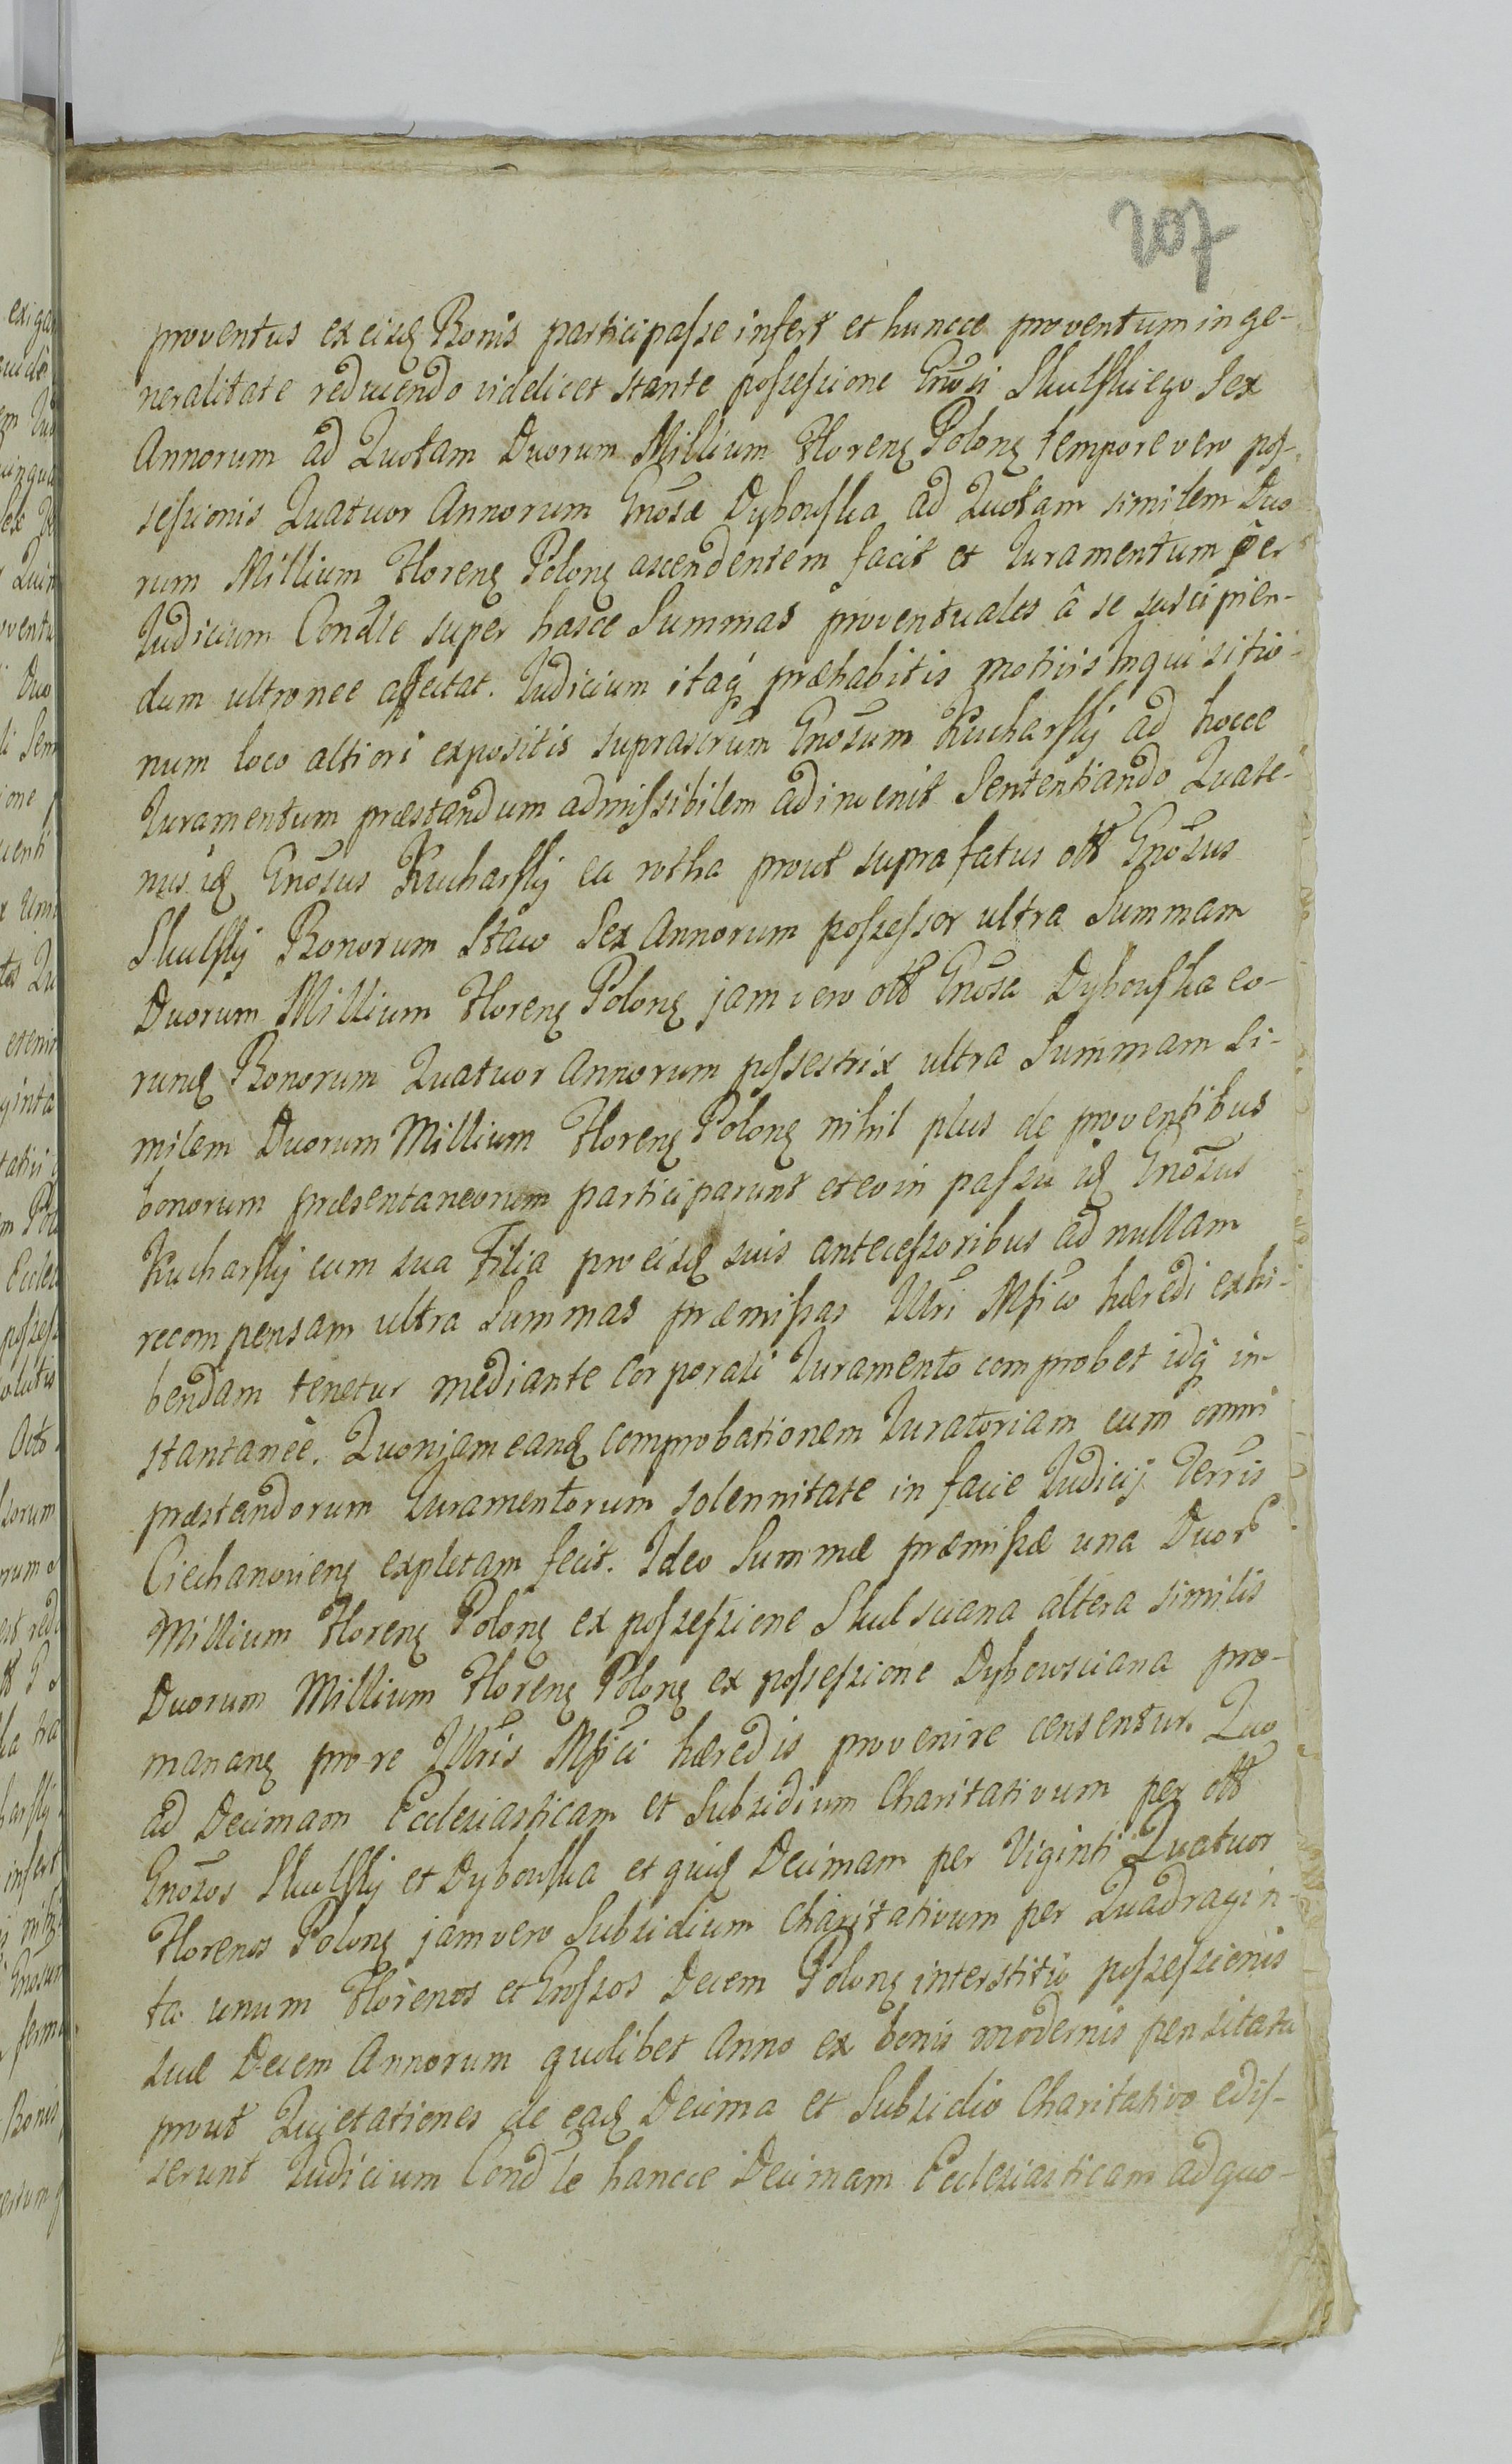 207
proventus ex eisq Bonis participasse infert et huncce proventum in ge-
neralitate reducendo videlicet stante possessione Gnosi Skulskiego Sex
Annorum ad Quotam Duorum Millium Florenq Polonq tempore vero pos-
sessionis Quatuor Annorum Gnosæ Dybowska ad Quotam similem Duo
rum Millium Florenq Polonq ascendentem facit et Juramentum per
Judicium Condle super hasce Summas proventuales â se suscipien-
dum ultronee affectat. Judicium itaq præhabitis motivis Inquisitio-
num loco altiori expositis suprascrum Gnosum Kucharskj ad hocce
Juramentum præstandum admissibilem adinvenit Sententiando Quate-
nus iq Gnosus Kucharskj ea rotha prout suprafatus olt Gnosus
Skulskj Bonorum Staw Sex Annorum possessor ultra Summam
Duorum Millium Florenq Polonq jam vero olt Gnosa Dybowska eo-
runq Bonorum Quatuor Annorum possestrix ultra Summam Si-
milem Duorum Millium Florenq Polonq nihil plus de proventibus
bonorum præsentaneorum participarunt et eo in passu iq Gnosus
Kucharskj cum sua Filia pro eisq suis antecessoribus ad nullam
recompensam ultra Summas præmissas Illri Mfico hæredi exhi-
bendam tenetur mediante Corporali Juramento comprobet idq in-
stantanèe. Quoniam eanq comprobationem Juratoriam cum omni
præstandorum Juramentorum solennitate in facie Judicij Terris
Ciechanovienq expletam fecit. Ideo Summæ præmissæ una Duor
Millium Florenq Polonq ex possessione Skulsciana altera similis
Duorum Millium Florenq Polonq ex possessione Dybowsciana pro-
mananq pro re Illris Mfici hæredis provenire censentur. Quo
ad Decimam Ecclesiasticam et Subsidium Charitativum per olt
Gnosos Skulskj et Dybowska et quiq Decimam per Viginti Quatuor
Florenos Polonq jam vero Subsidium Charitativum per Quadragin-
ta unum Florenos et Grossos Decem Polonq interstitio possessionis
suæ Decem Annorum quolibet Anno ex bonis modernis pensitata
prout Quietationes de eaq Decima et Subsidio Charitativo edis-
serunt Judicium Condle hancce Decimam Ecclesiasticam ad quo-